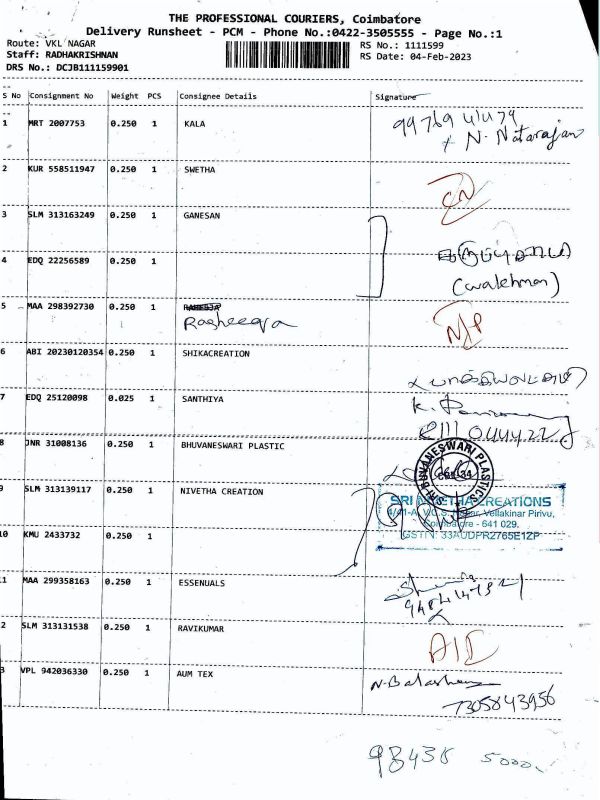 THE PROFESSIONAL COURIERS, Coimbatore
Delivery Runsheet - PCM - Phone No.:0422-3505555 - Page No.:1
Route: VKL NAGAR RS No.: 1111599
Staff: RADHAKRISHNAN RS Date: 04-Feb-2023
DRS No.: DCJB111159901
S No Consignment No Weight PCS Consignee Details Signature
1 MRT 2007753 0.250 1 KALA
N. Natarajan
2 KUR 558511947 0.250 1 SWETHA
3 SLM 313163249 0.250 1 GANESAN
4 EDQ 22256589 0.250 1
(watchman)
5 MAA 298392730 0.250 1
N/P
6 ABI 20230120354 0.250 1 SHIKACREATION
7 EDQ 25120098 0.025 1 SANTHIYA
8 JNR 31008136 0.250 1 BHUVANESWARI PLASTIC
SRI BUVANESWARI PLASTICS
9 SLM 313139117 0.250 1 NIVETHA CREATION
SRI NIVETHA CREATIONS
Vellakinar Pirivu,
Coimbatore - 641 029.
GSTN: 33AUDPR2765E1ZP
10 KMU 2433732 0.250 1
11 MAA 299358163 0.250 1 ESSENUALS
2 SLM 313131538 0.250 1 RAVIKUMAR
3 VPL 942036330 0.250 1 AUM TEX
7305843956
98438 5000